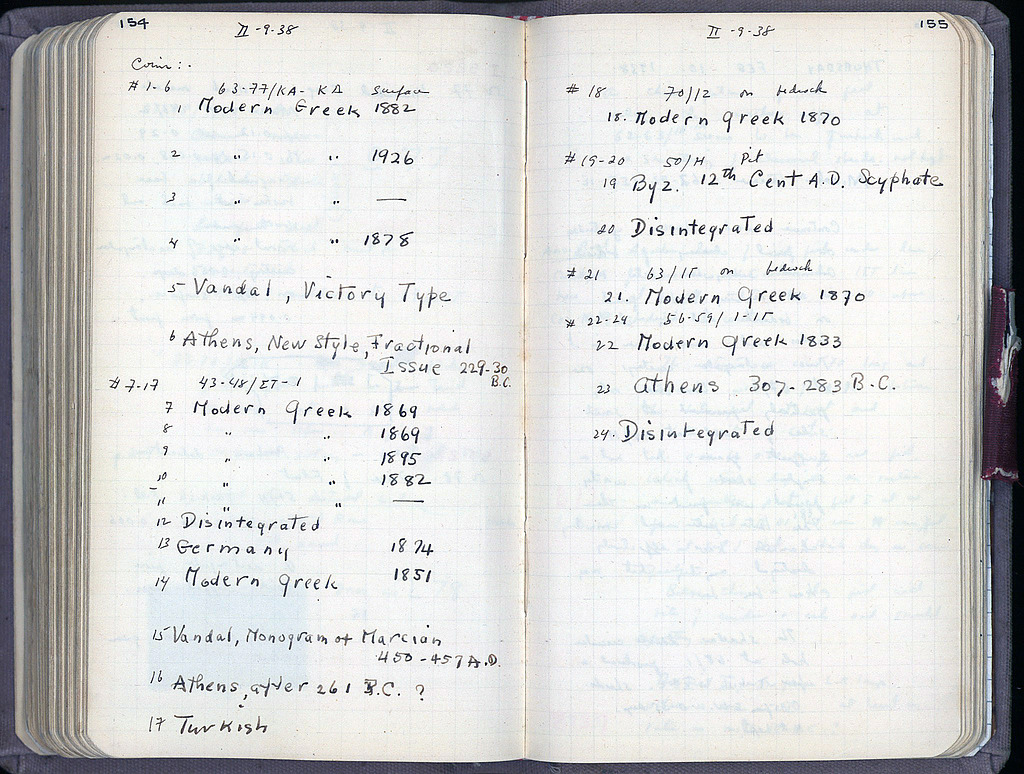 154
II-9-38
Coins:.
#1-6 63-77/ΚΑ-ΚΔ Surface
1 Modern Greek 1882
2 " " 1926
3 " " —
4 " " 1878
5 Vandal, Victory Type
6 Athens, New Style, Fractional
Issue 229-30
B.C.
#7-17 43-48/ΣΤ-1
7 Modern Greek 1869
8 " " 1869
9 " " 1895
10 " " 1882
11 " " —
12 Disintegrated
13 Germany 1874
14 Modern Greek 1851
15 Vandal, Monogram of Marcian
450-457 A.D.
16 Athens, after 261 B.C. ?
17 Turkish
155
II-9-38
#18 70/12 on bedrock
18. Modern Greek 1870
#19-20 50/H Pit
19 Byz. 12th Cent A.D. Scyphate
20 Disintegrated
#21 63/15 on bedrock
21. Modern Greek 1870
#22-24 56-59/1-15
22 Modern Greek 1833
23 Athens 307-283 B.C.
24. Disintegrated